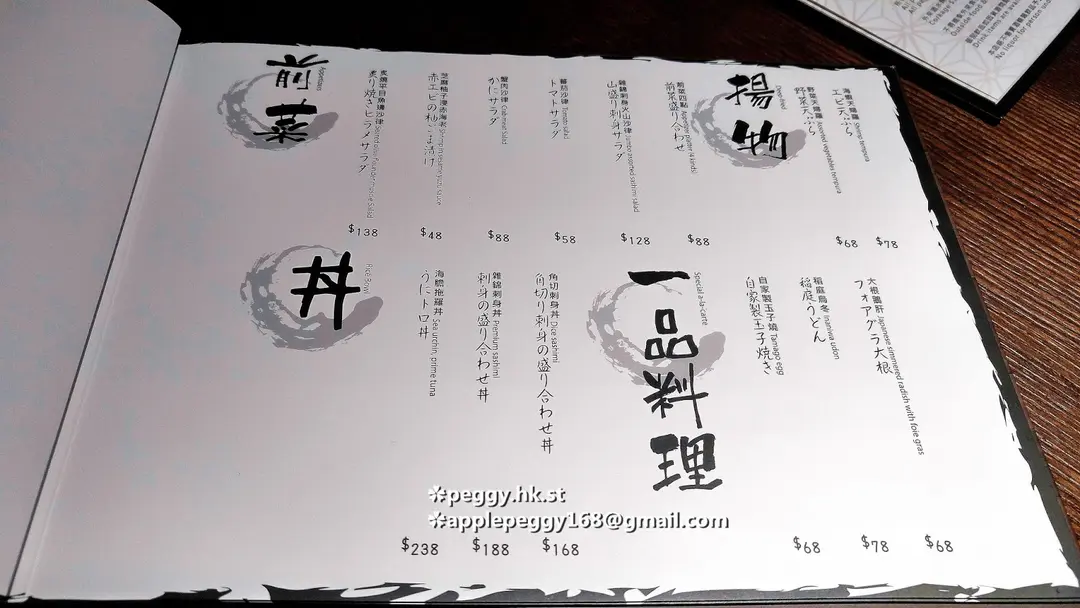 前菜
Appetizers
炙り焼きヒラメサラダ
$138
赤エビの柚ごま漬け
$48
蟹肉沙律 Crabmeat salad
かにサラダ
$88
蕃茄沙律 Tomato salad
トマトサラダ
$58
雜錦刺身火山沙律 Jumbo assorted sashimi salad
山盛り刺身サラダ
$128
前菜四點 Appetizer platter (4 kinds)
前菜盛り合わせ
$88
揚物
Deep fried
野菜天婦羅 Assorted vegetables tempura
野菜天ぷら
$68
海蝦天婦羅 Shrimp tempura
エビ天ぷら
$78
丼
Rice Bowl
海膽拖羅丼 Sea urchin, prime tuna
うにトロ丼
$238
雜錦刺身丼 Premium sashimi
刺身の盛り合わせ丼
$188
角切刺身丼 Dice sashimi
角切り刺身の盛り合わせ丼
$168
一品料理
Special a-la-carte
自家製玉子燒 Tamago egg
自家製玉子焼き
$68
稻庭烏冬 Inaniwa udon
稲庭うどん
$78
大根鵝肝 Japanese simmered radish with foie gras
フォアグラ大根
$68
✽peggy.hk.st
✽applepeggy168@gmail.com